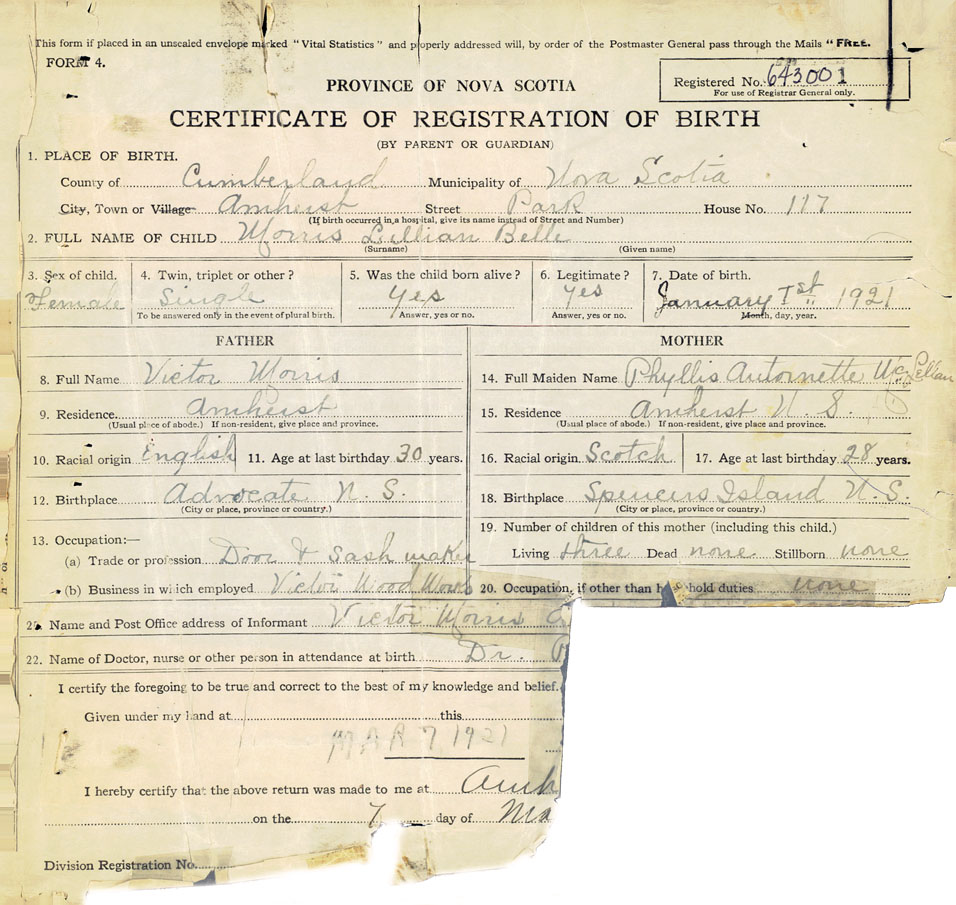 This form if placed in an unsealed envelope marked "Vital Statistics" and properly addressed will, by order of the Postmaster General pass through the Mails "FREE.
FORM 4.
PROVINCE OF NOVA SCOTIA
Registered No. 643001
For use of Registrar General only.
CERTIFICATE OF REGISTRATION OF BIRTH
(BY PARENT OR GUARDIAN)
1. PLACE OF BIRTH.
County of Cumberland Municipality of Nova Scotia
City, Town or Village Amherst Street Park House No. 117
(If birth occurred in a hospital, give its name instead of Street and Number)
2. FULL NAME OF CHILD Morris Lillian Belle
(Surname) (Given name)
3. Sex of child. 4. Twin, triplet or other? 5. Was the child born alive? 6. Legitimate? 7. Date of birth.
Female Single Yes Yes January 1st 1921
To be answered only in the event of plural birth. Answer, yes or no. Answer, yes or no. Month, day, year.
FATHER MOTHER
8. Full Name Victor Morris 14. Full Maiden Name Phyllis Antoinette McLellan
9. Residence. Amherst 15. Residence Amherst N. S.
(Usual place of abode.) If non-resident, give place and province. (Usual place of abode.) If non-resident, give place and province.
10. Racial origin English 11. Age at last birthday 30 years. 16. Racial origin Scotch 17. Age at last birthday 28 years.
12. Birthplace Advocate N. S. 18. Birthplace Spencers Island N. S.
(City or place, province or country.) (City or place, province or country.)
19. Number of children of this mother (including this child.)
13. Occupation:—
(a) Trade or profession Door & Sash maker Living three Dead none Stillborn none
(b) Business in which employed Victor Wood Works 20. Occupation, if other than household duties none
21. Name and Post Office address of Informant Victor Morris
22. Name of Doctor, nurse or other person in attendance at birth Dr.
I certify the foregoing to be true and correct to the best of my knowledge and belief.
Given under my hand at this
MAR 7 1921
I hereby certify that the above return was made to me at Amh
on the 7 day of Ma
Division Registration No.